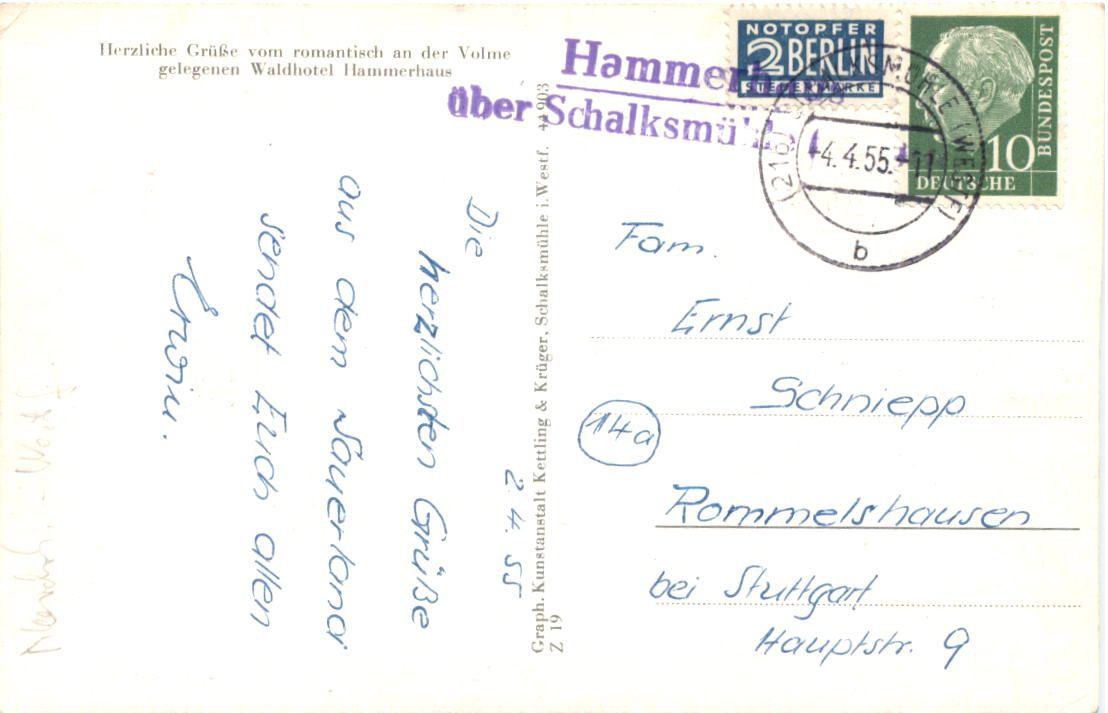 Herzliche Grüße vom romantisch an der Volme
gelegenen Waldhotel Hammerhaus
Hammerh
über Schalksmühle
NOTOPFER
2 BERLIN
STEUERMARKE
BUNDESPOST
10
DEUTSCHE
(21b) SCHALKSMÜHLE (WESTF)
-4.4.55.-11
b
2.4.55
Die
herzlichsten Grüße
aus dem Sauerland
sendet Euch allen
Erwin.
Graph. Kunstanstalt Kettling & Krüger, Schalksmühle i. Westf. 41903
Z 19
Fam.
Ernst
Schniepp
14a
Rommelshausen
bei Stuttgart
Hauptstr. 9